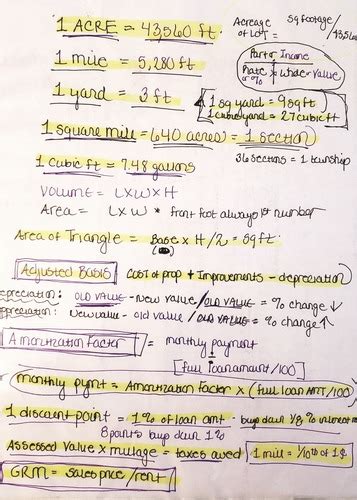 1 ACRE = 43,560 ft.
Acreage of LOT = sq footage / 43,560
1 mile = 5,280 ft
Part or Income
Rate or % x whole - value
1 yard = 3 ft
1 sq yard = 9 sq ft
1 cubic yard = 27 cubic ft
1 square mile = 640 acres = 1 section
1 cubic ft = 7.48 gallons
36 sections = 1 township
Volume = L x W x H
Area = L x W * front foot always 1st number
Area of Triangle = Base x H / 2 = sq ft.
Adjusted Basis cost of prop + Improvements - depreciation
epreciation: OLD VALUE - New value / OLD VALUE = % change ↓
ppreciation: New value - old value / OLD VALUE = % change ↑
Amortization Factor = monthly payment
÷
[full loan amount / 100]
monthly pymt = Amortization Factor x (full loan AMT / 100)
1 discount point = 1% of loan amt - buys down 1/8 % interest
8 points buys down 1%
Assessed Value x millage = taxes owed
1 mill = 1/10th of 1¢
GRM = sales price / rent